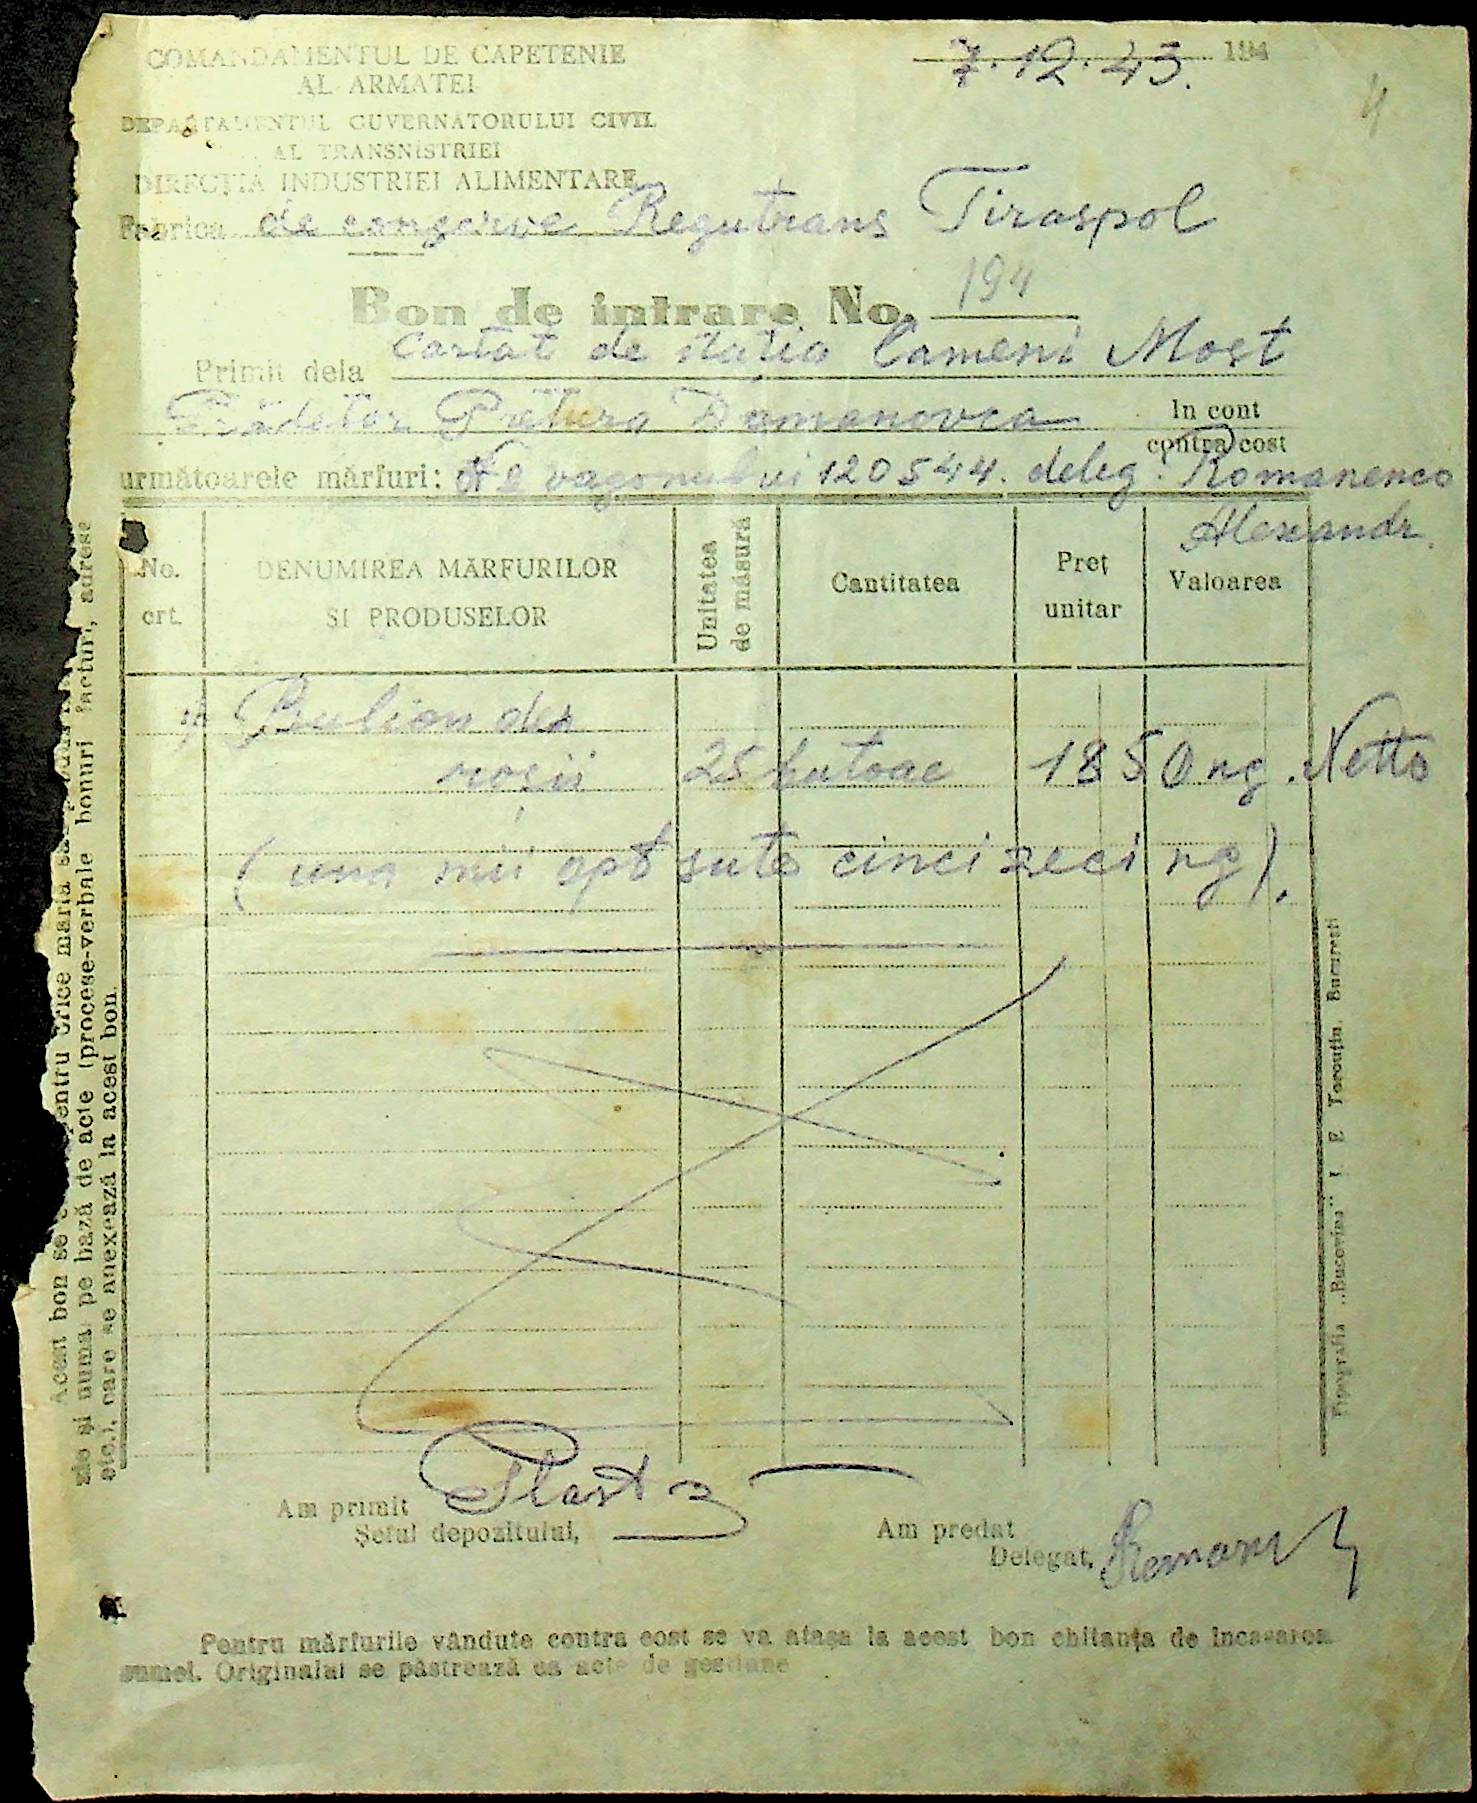 COMANDAMENTUL DE CAPETENIE
AL ARMATEI
DEPARTAMENTUL GUVERNATORULUI CIVIL
AL TRANSNISTRIEI
DIRECȚIA INDUSTRIEI ALIMENTARE
7.12.43. 194
4
Fabrica de conserve Regutrans Tiraspol
Bon de intrare No. 194
Primit dela Cartat de statia Cameni Most
Prădător Pretura Domanovca In cont
contra cost
următoarele mărfuri: No vagonului 120544. deleg. Romanenco
Alexandr.
No. crt.
DENUMIREA MĂRFURILOR
SI PRODUSELOR
Unitatea
de măsură
Cantitatea
Preț
unitar
Valoarea
1 Bulion den
roșii 25 butoae 1850 kg. Netto
(una mii opt sute cinci zeci kg).
Am primit
Șeful depozitului,
Am predat
Delegat,
Pentru mărfurile vândute contra cost se va atașa la acest bon chitanța de incasarea
sumei. Originalul se păstrează ca acte de gestiune
Acest bon se pentru orice marfă
zie și numai pe bază de acte (procese-verbale bonuri facturi, adrese
etc.), care se anexează la acest bon.
Tipografia „Bucovina" I E Toroutiu, Bucuresti